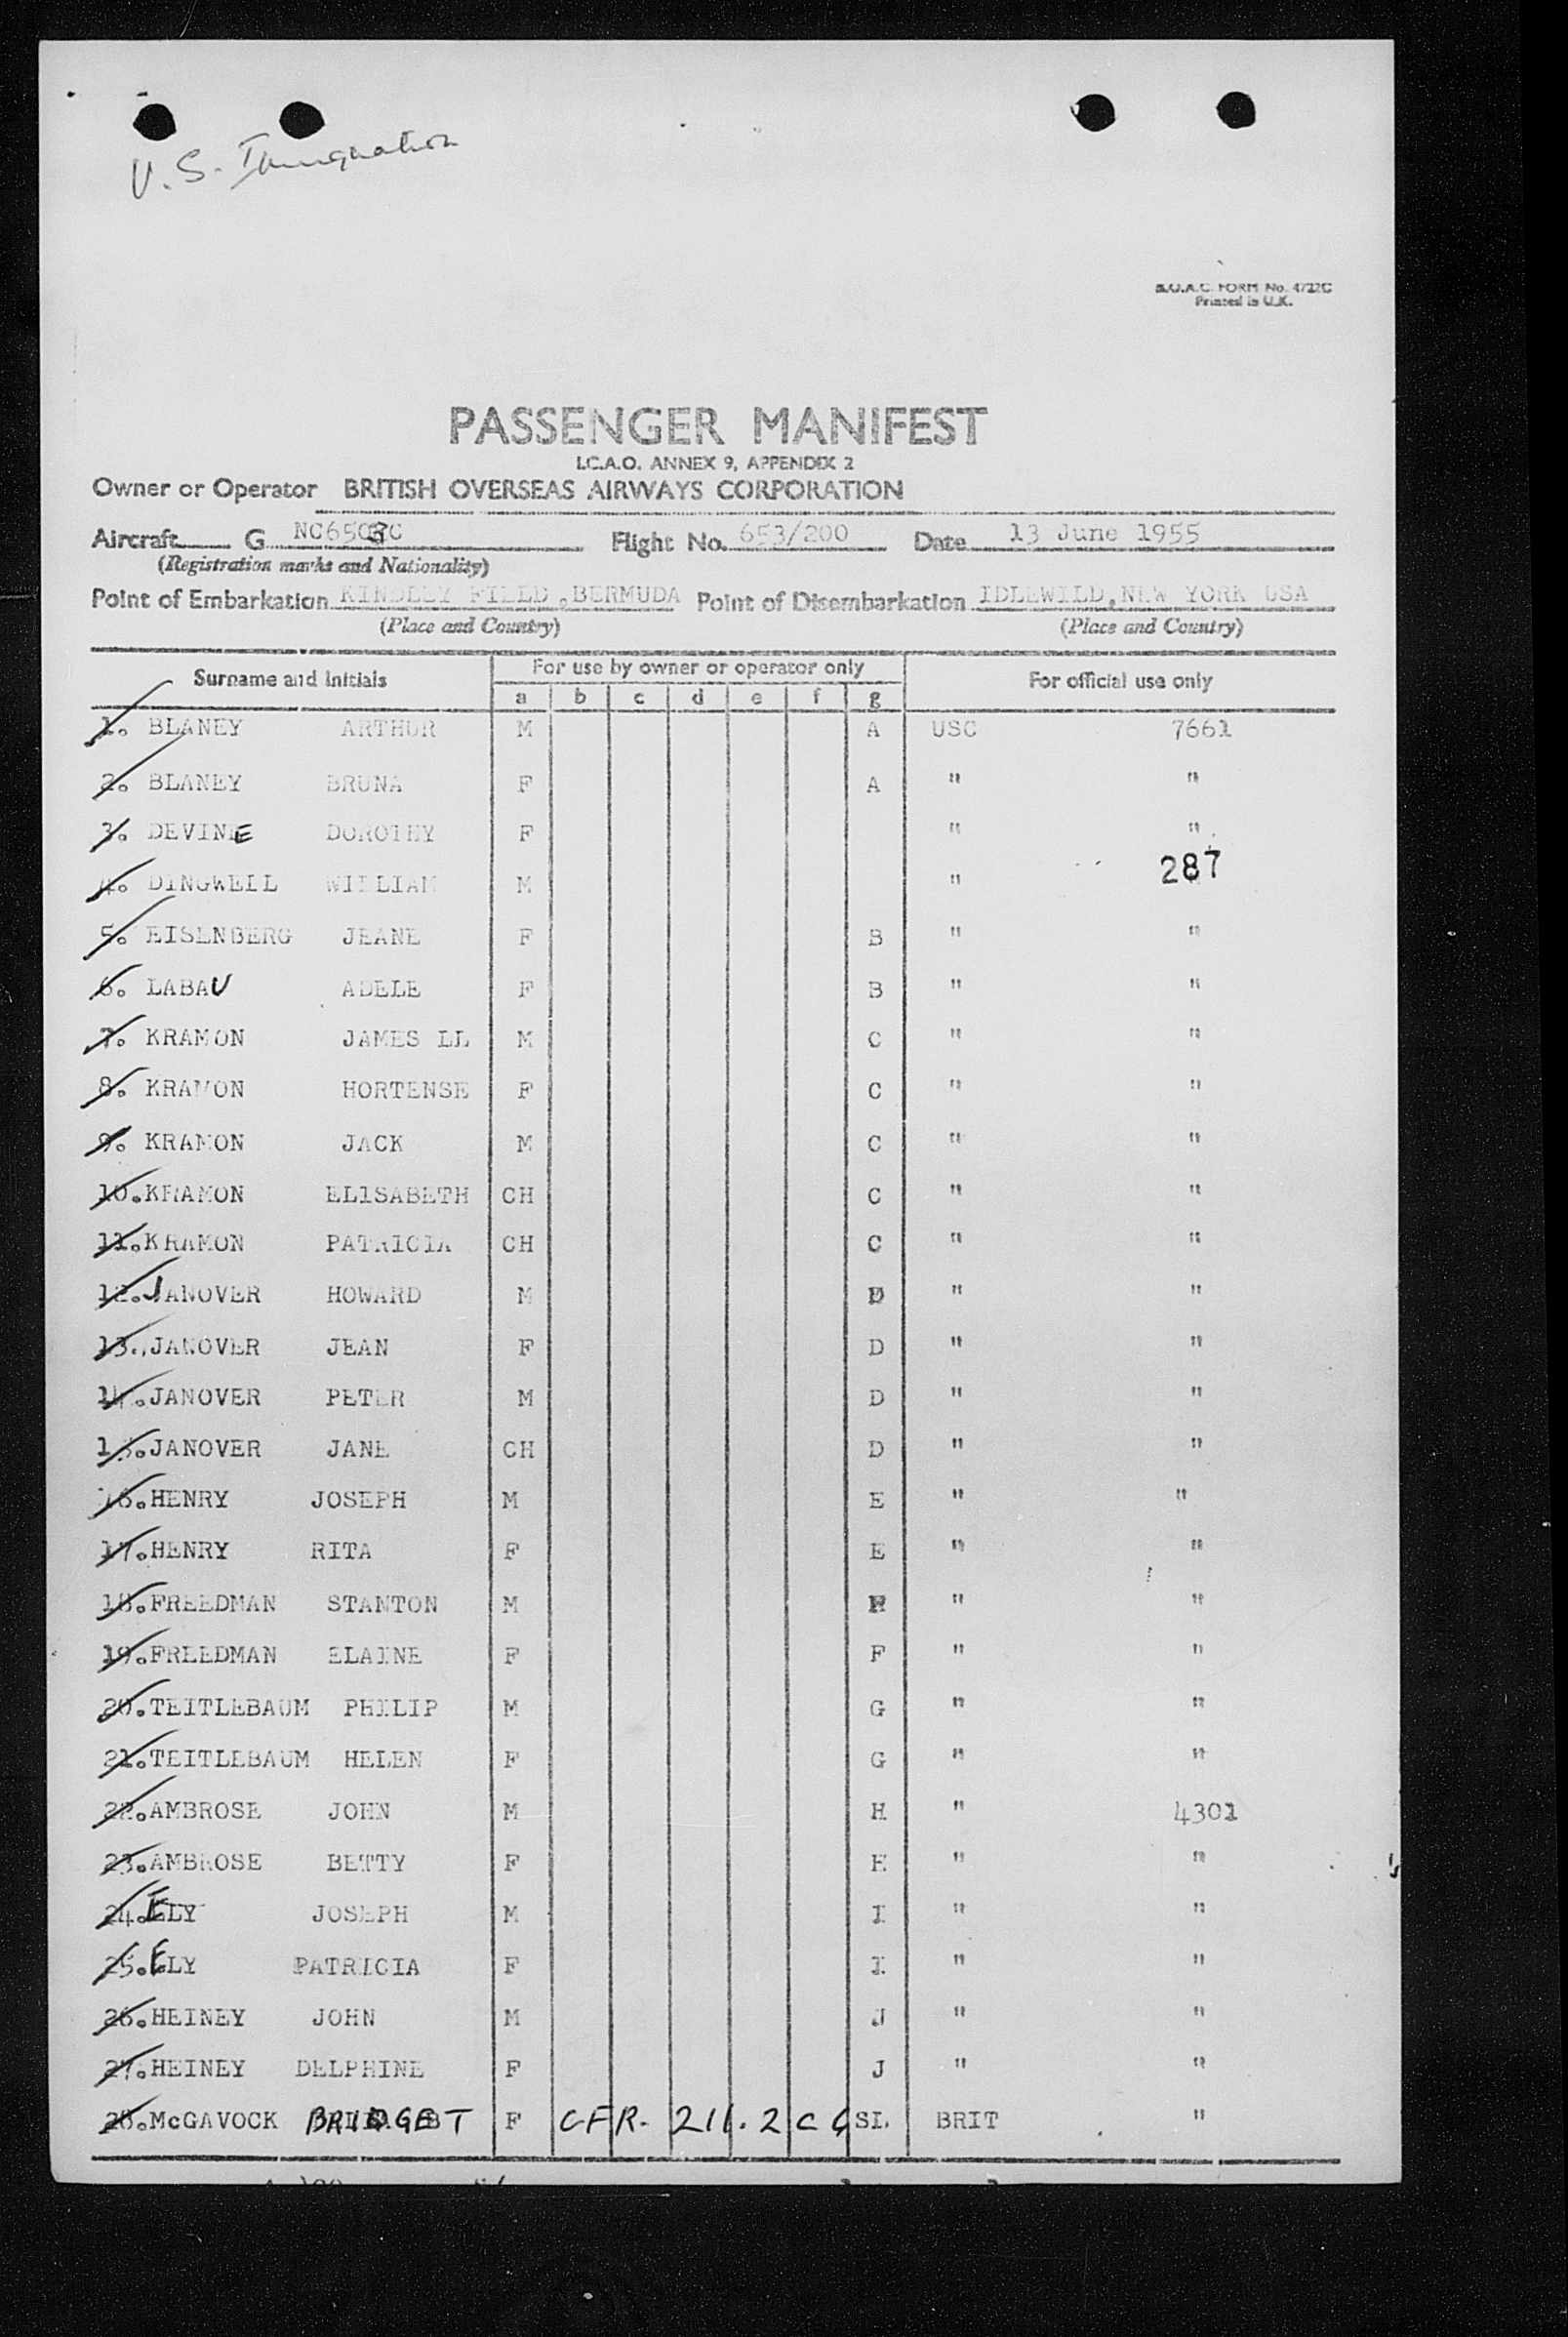 U. S. Immigration
B.O.A.C. FORM No. 4722C
Printed in U.K.
PASSENGER MANIFEST
I.C.A.O. ANNEX 9, APPENDIX 2
Owner or Operator BRITISH OVERSEAS AIRWAYS CORPORATION
Aircraft G NC6503C Flight No. 653/200 Date 13 June 1955
(Registration marks and Nationality)
Point of Embarkation KINDLEY FILLD, BERMUDA Point of Disembarkation IDLEWILD, NEW YORK USA
(Place and Country) (Place and Country)
Surname and Initials For use by owner or operator only For official use only
a b c d e f g
1. BLANEY ARTHUR M A USC 7661
2. BLANEY BRUNA F A " "
3. DEVINE DOROTHY F " "
4. DINGWELL WILLIAM M " 287
5. EISENBERG JEANE F B " "
6. LABAU ADELE F B " "
7. KRAMON JAMES LL M C " "
8. KRAMON HORTENSE F C " "
9. KRAMON JACK M C " "
10. KRAMON ELISABETH CH C " "
11. KRAMON PATRICIA CH C " "
12. JANOVER HOWARD M D " "
13. JANOVER JEAN F D " "
14. JANOVER PETER M D " "
15. JANOVER JANE CH D " "
16. HENRY JOSEPH M E " "
17. HENRY RITA F E " "
18. FREEDMAN STANTON M F " "
19. FREEDMAN ELAINE F F " "
20. TEITLEBAUM PHILIP M G " "
21. TEITLEBAUM HELEN F G " "
22. AMBROSE JOHN M H " 4301
23. AMBROSE BETTY F H " "
24. ELY JOSEPH M I " "
25. ELY PATRICIA F I " "
26. HEINEY JOHN M J " "
27. HEINEY DELPHINE F J " "
28. McGAVOCK BRIDGET F CFR. 211.2 SL BRIT "